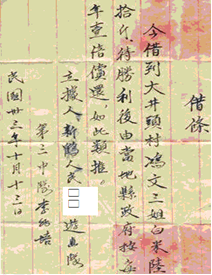 借條
今借到大井頭村馮文三姐白米陸
拾斤待勝利後由當地縣政府按每
年壹倍償還如此類推
立據人新鶴人民□□遊擊隊
第三中隊李兆培
民國卅三年十月十三日